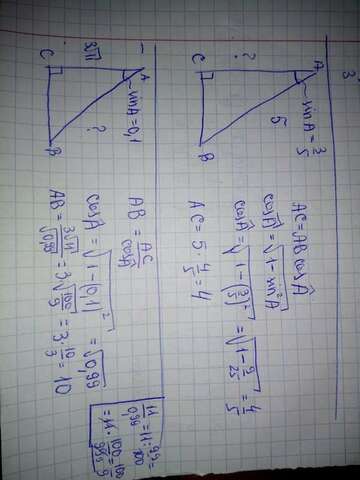 3
A
?
C
B
5
sin A = 3/5
AC = AB cos Â
cos Â = √(1 - sin²A)
cos Â = √(1 - (3/5)²) = √(1 - 9/25) = 4/5
AC = 5 · 4/5 = 4
A
3√11
C
B
?
sin A = 0,1
AB = AC/cos Â
cos Â = √(1 - (0,1)²) = √0,99
AB = 3√11/√0,99 = 3√(100/9) = 3 · 10/3 = 10
11/0,99 = 11 : 99/100 =
= 11 · 100/99 = 100/9